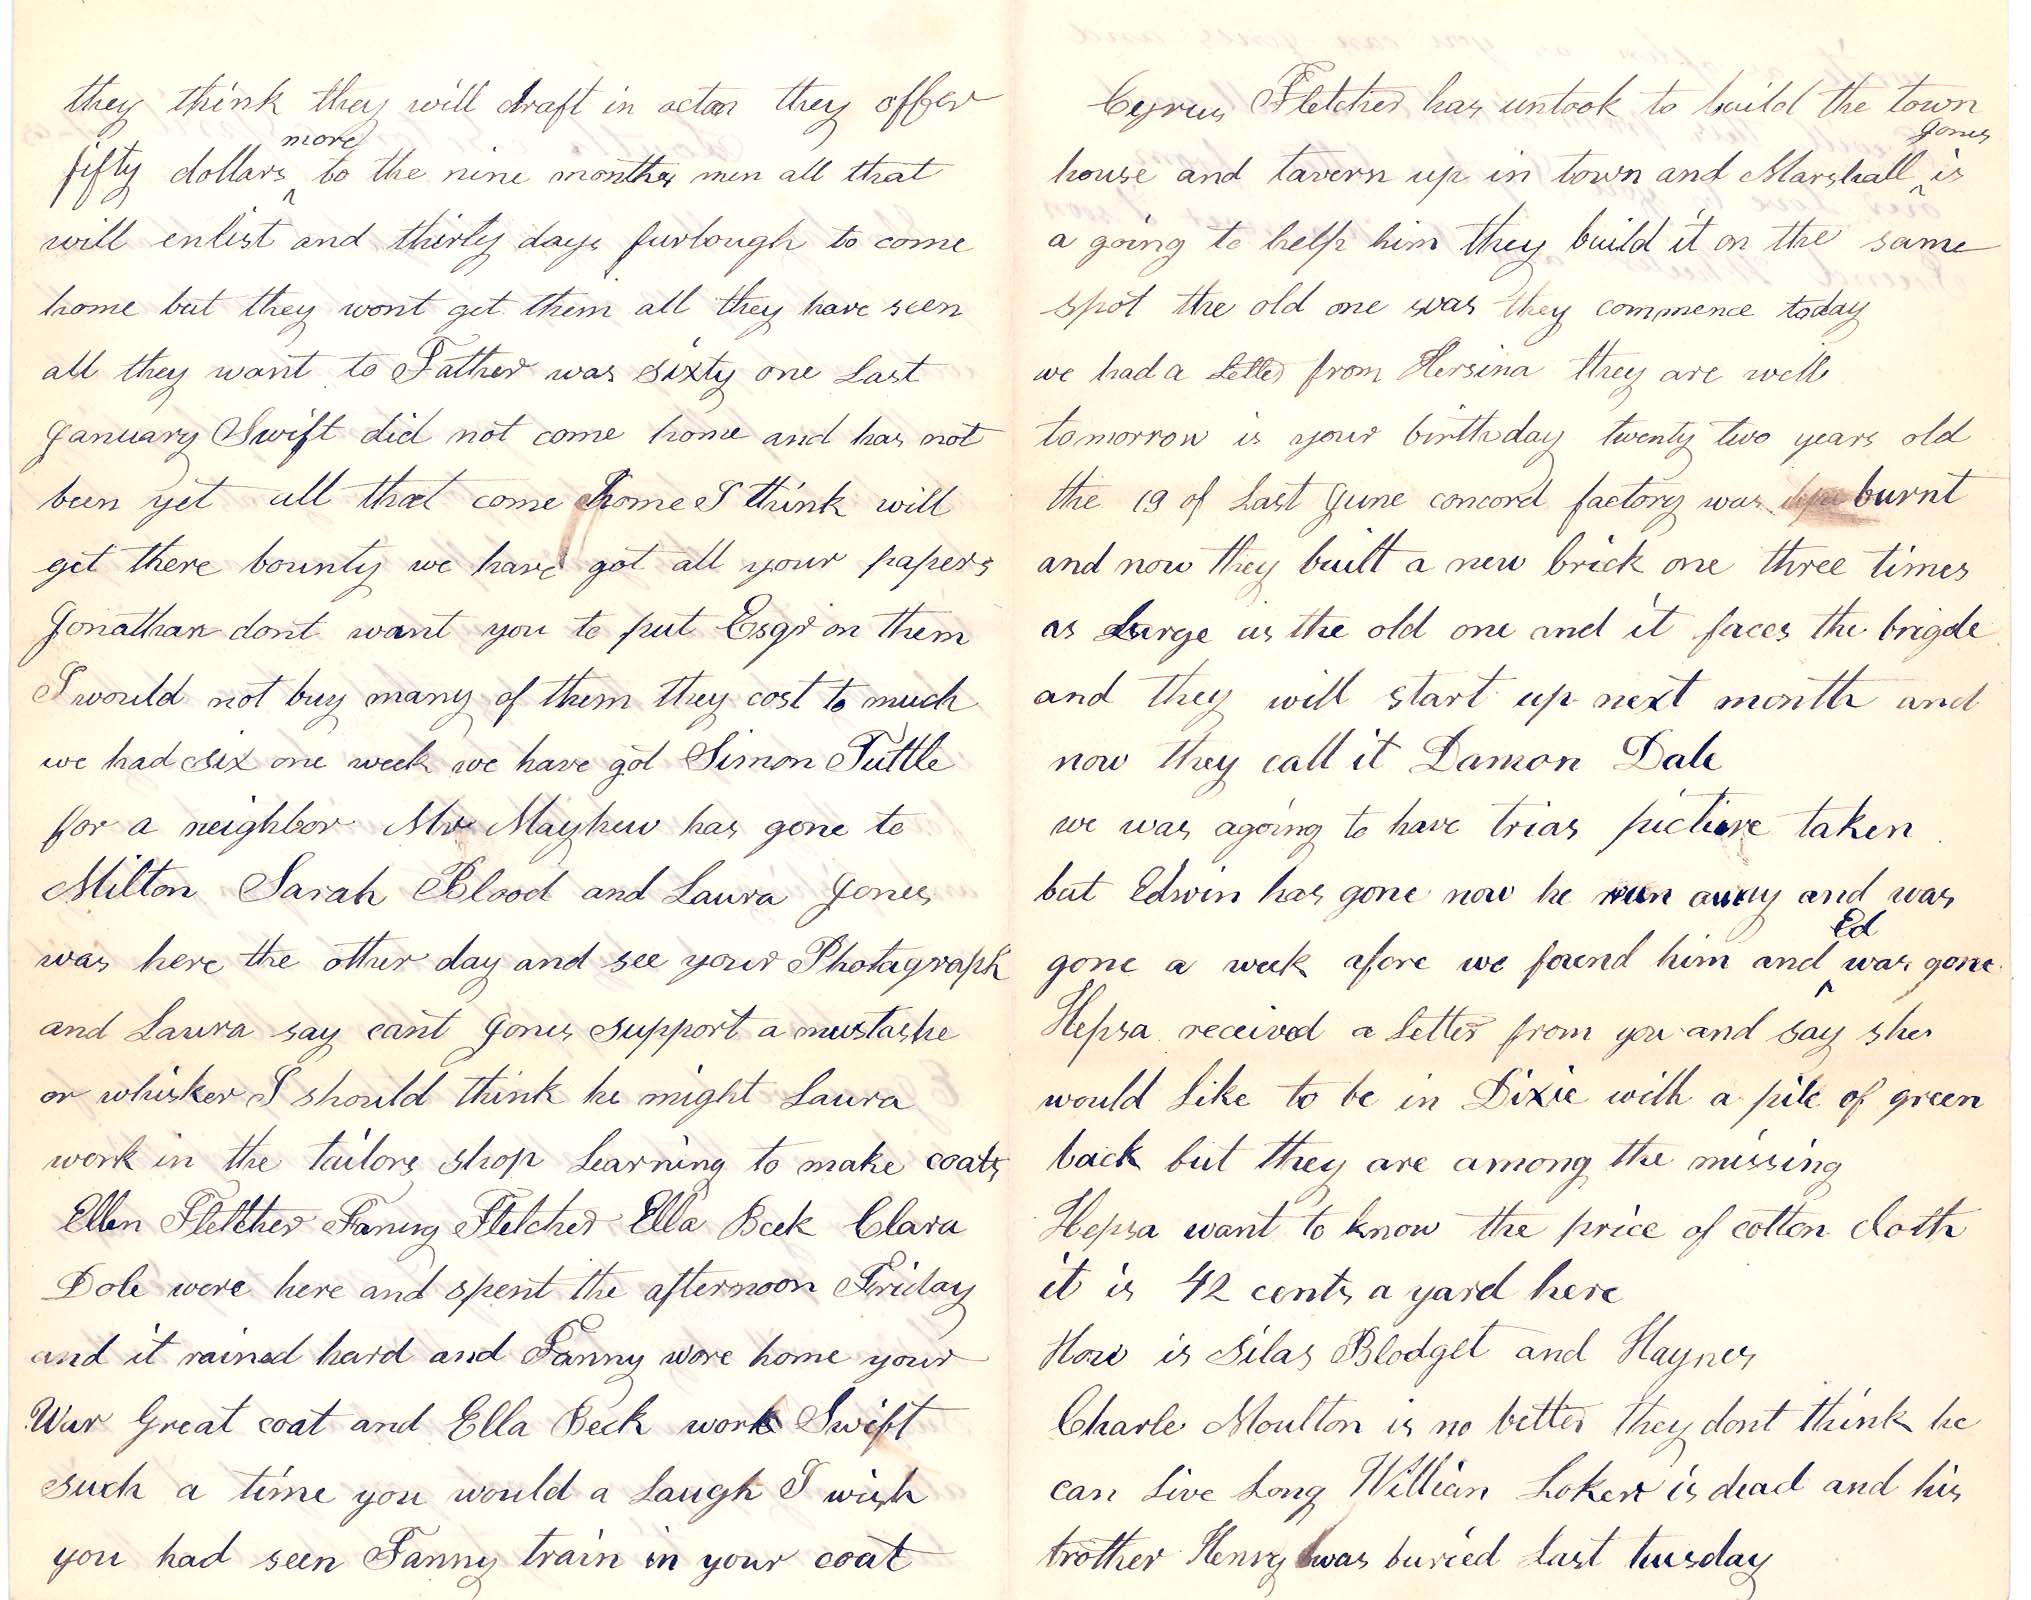 they think they will draft in acton they offer
fifty dollars ^more to the nine months men all that
will enlist and thirty days furlough to come
home but they wont get them all they have seen
all they want to Father was sixty one Last
January Swift did not come home and has not
been yet all that come home I think will
get there bounty we have got all your papers
Jonathan dont want you to put Esqr on them
I would not buy many of them they cost to much
we had six one week we have got Simon Tuttle
for a neighbor Mr Mayhew has gone to
Milton Sarah Blood and Laura Jones
was here the other day and see your Photagraph
and Laura say cant Jones support a mustashe
or whisker I should think he might Laura
work in the tailors shop Learning to make coats
Ellen Fletcher Fanny Fletcher Ella Beck Clara
Dole were here and spent the afternoon Friday
and it rained hard and Fanny wore home your
War Great coat and Ella Beck work Swift
such a time you would a Laugh I wish
you had seen Fanny train in your coat
Cyrus Fletcher has untook to build the town
house and tavern up in town and Marshall ^Jones is
a going to help him they build it on the same
spot the old one was they commence today
we had a Letter from Hersina they are well
tomorrow is your birthday twenty two years old
the 19 of Last June concord factory was burnt
and now they built a new brick one three times
as Large as the old one and it faces the brigde
and they will start up next month and
now they call it Damon Dale
we was agoing to have trias picture taken
but Edwin has gone now he run away and was
gone a week afore we found him and ^Ed was gone
Hepsa received a Letter from you and say she
would Like to be in Dixie with a pile of green
back but they are among the missing
Hepsa want to know the price of cotton cloth
it is 42 cents a yard here
How is Silas Blodget and Haynes
Charle Moulton is no better they dont think he
can Live Long Willian Loker is dead and his
brother Henry was buried Last tuesday